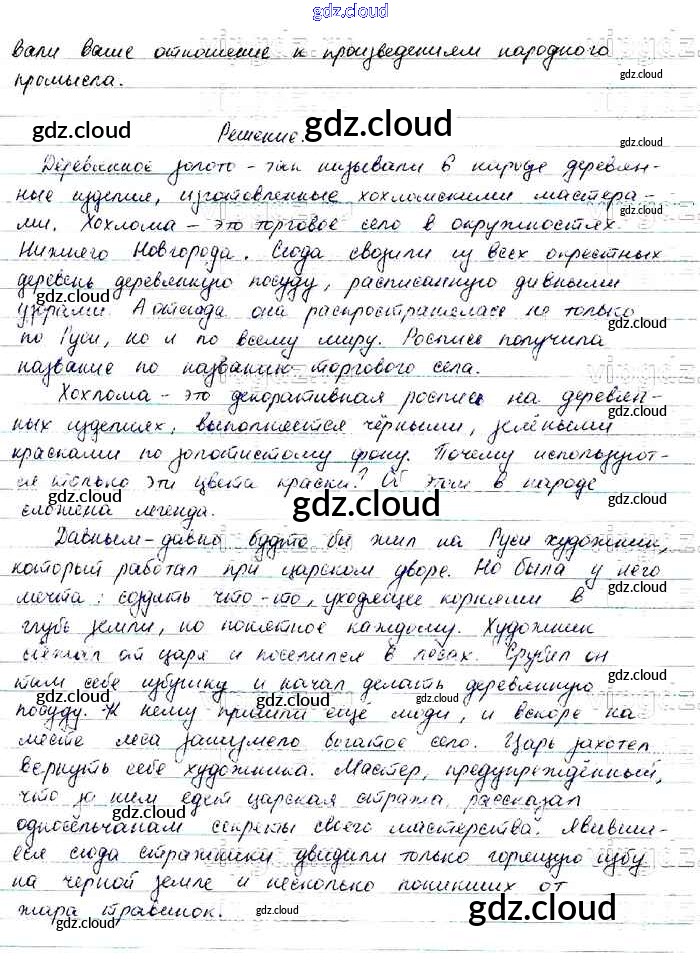 gdz.cloud
вали ваше отношение к произведениям народного
gdz.cloud
промысла.
gdz.cloud gdz.cloud gdz.cloud
Решение.
Деревянное золото - так называли в народе деревян-
ные изделия, изготовленные хохломскими мастера-
gdz.cloud
ми. Хохлома - это торговое село в окружностях
Нижнего Новгорода. Сюда свозили из всех окрестных
деревень деревянную посуду, расписанную дивными
gdz.cloud
узорами. А отсюда она распространялась не только
gdz.cloud
по Руси, но и по всему миру. Роспись получила
название по названию торгового села.
Хохлома - это декоративная роспись на деревян-
ных изделиях, выполняется чёрными, зелёными
gdz.cloud
красками по золотистому фону. Почему используют-
ся только эти цвета краски? Об этом в народе
gdz.cloud gdz.cloud
сложена легенда.
Давным-давно будто бы жил на Руси художник,
который работал при царском дворе. Но была у него
мечта: создать что-то, уходящее корнями в
глубь земли, но понятное каждому. Художник
сбежал от царя и поселился в лесах. Срубил он
gdz.cloud
там себе избушку и начал делать деревянную
gdz.cloud
посуду. К нему пришли ещё люди, и вскоре на
месте леса зашумело богатое село. Царь захотел
вернуть себе художника. Мастер, предупреждённый,
что за ним едет царская стража, рассказал
gdz.cloud
односельчанам секреты своего мастерства. Явивши-
gdz.cloud
еся сюда стражники увидили только горящую избу
на черной земле и несколько поникших от
жара травинок.
gdz.cloud gdz.cloud gdz.cloud